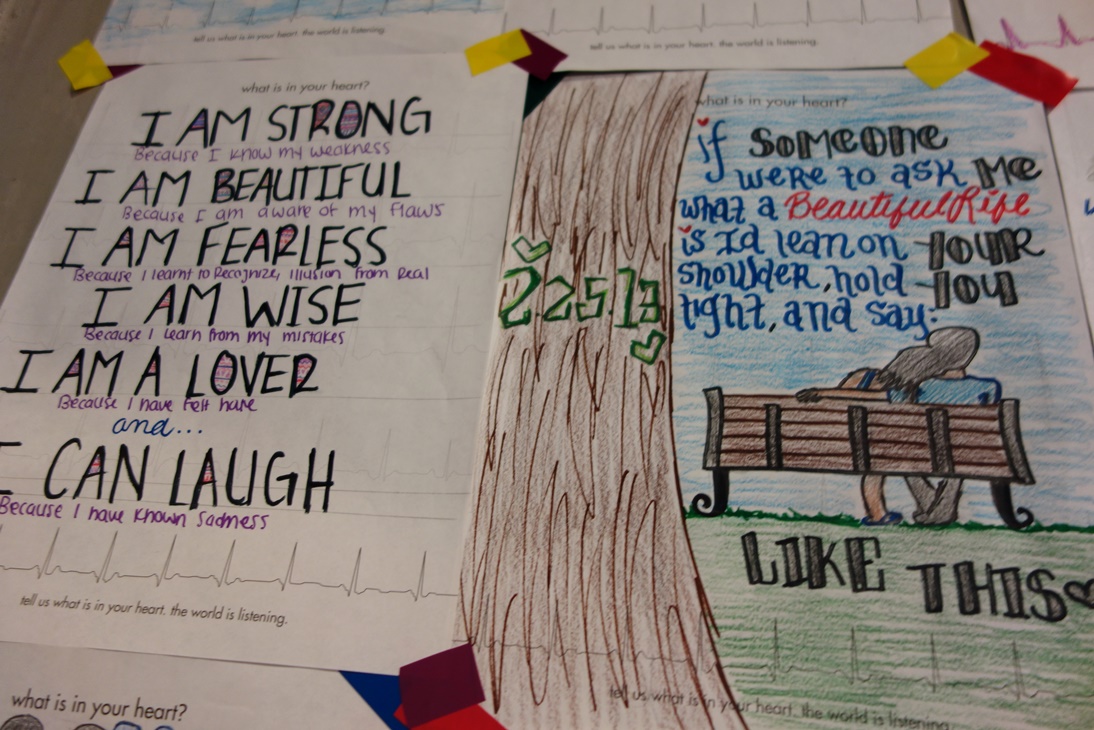 tell us what is in your heart. the world is listening.
tell us what is in your heart. the world is listening.
what is in your heart?
I AM STRONG
Because I know my weakness
I AM BEAUTIFUL
Because I am aware of my flaws
I AM FEARLESS
Because I learnt to Recognize, illusion from Real
I AM WISE
Because I learn from my mistakes
I AM A LOVER
Because I have felt hate
and...
I CAN LAUGH
Because I have known sadness
tell us what is in your heart. the world is listening.
2.25.13
what is in your heart?
if someone
were to ask me
what a Beautiful Life
is I'd lean on your
shoulder, hold you
tight, and say:
LIKE THIS
tell us what is in your heart. the world is listening.
what is in your heart?